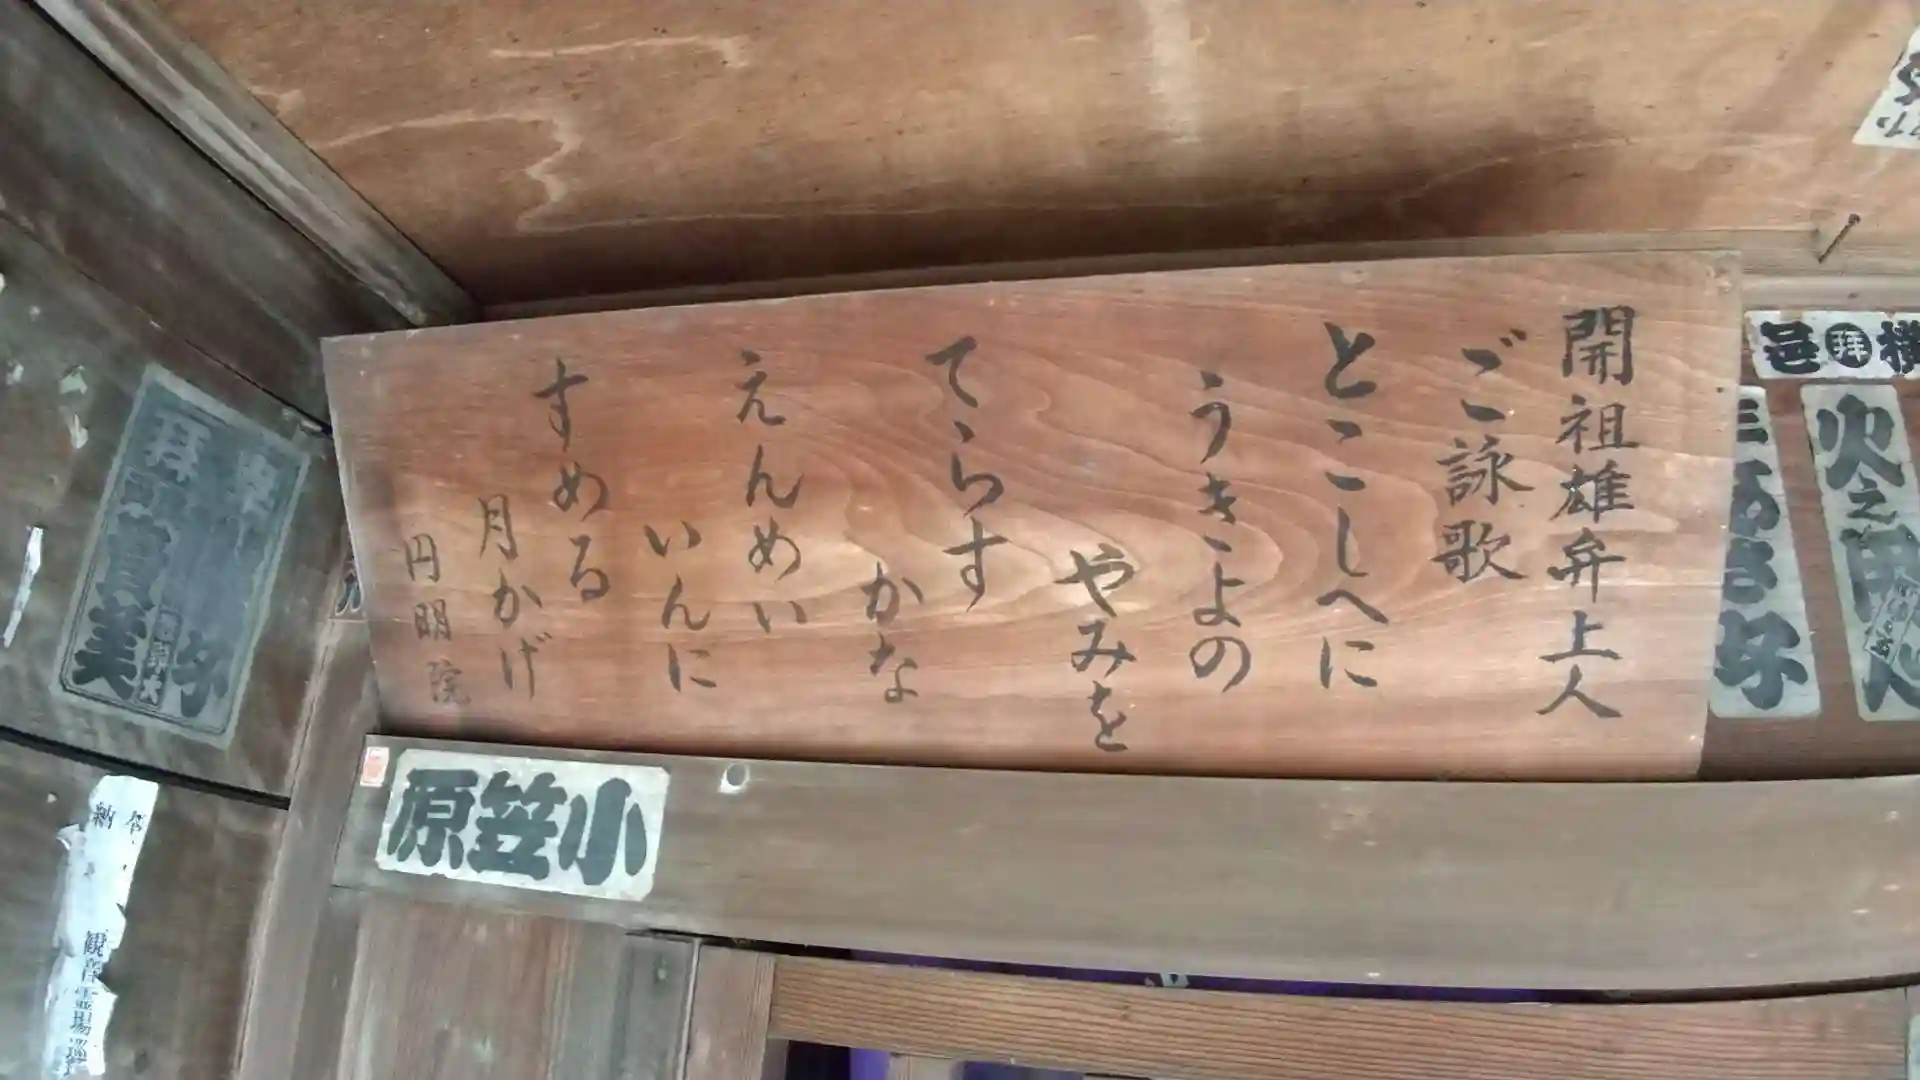 開祖雄弁上人
ご詠歌
とこしへに
うきよの
やみを
てらす
かな
えんめい
いんに
すめる
月かげ
円明院
小笠原
火之
奉納
観音霊場巡